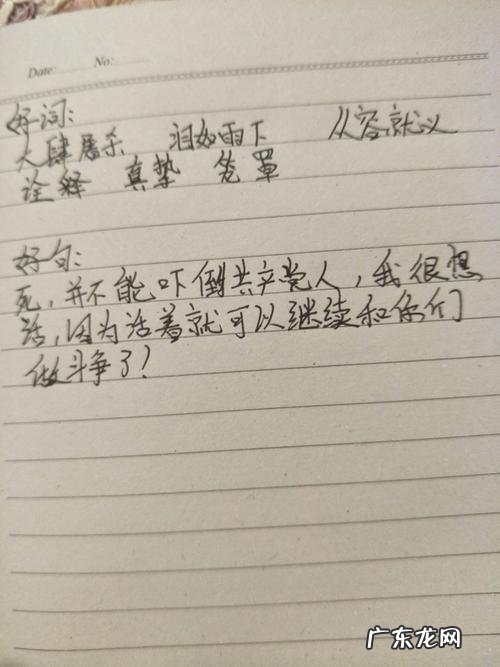 Date: No:
好词:
大肆屠杀 泪如雨下 从容就义
诠释 真挚 笼罩
好句:
死,并不能吓倒共产党人,我很想
活,因为活着就可以继续和你们
做斗争了!
广东龙网